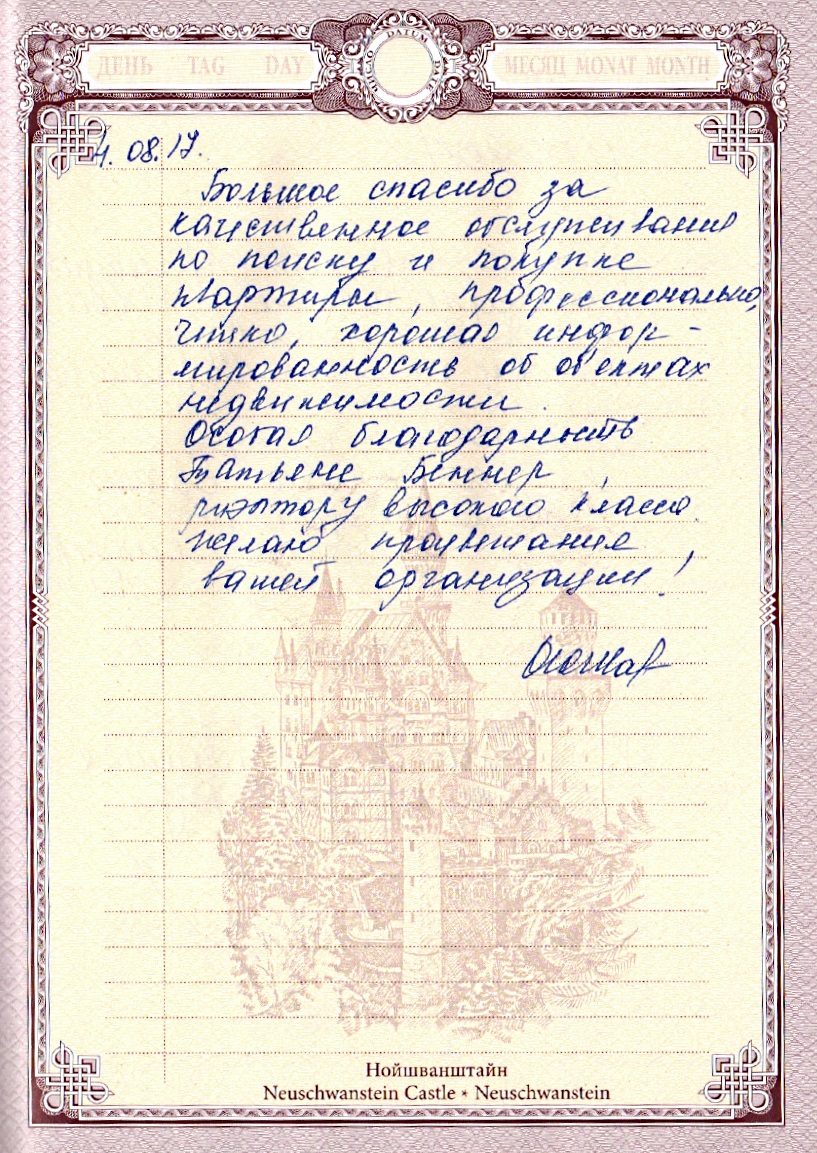 ДЕНЬ TAG DAY
ЧИСЛО DATUM DATE
МЕСЯЦ MONAT MONTH
4. 08. 17.
Большое спасибо за
качественное обслуживание
по поиску и покупке
квартиры, профессионально,
чётко, хорошая инфор-
мированность об объектах
недвижимости.
Особая благодарность
Татьяне Беннер,
риэлтору высокого класса.
Желаю процветания
вашей организации!
Нойшванштайн
Neuschwanstein Castle * Neuschwanstein